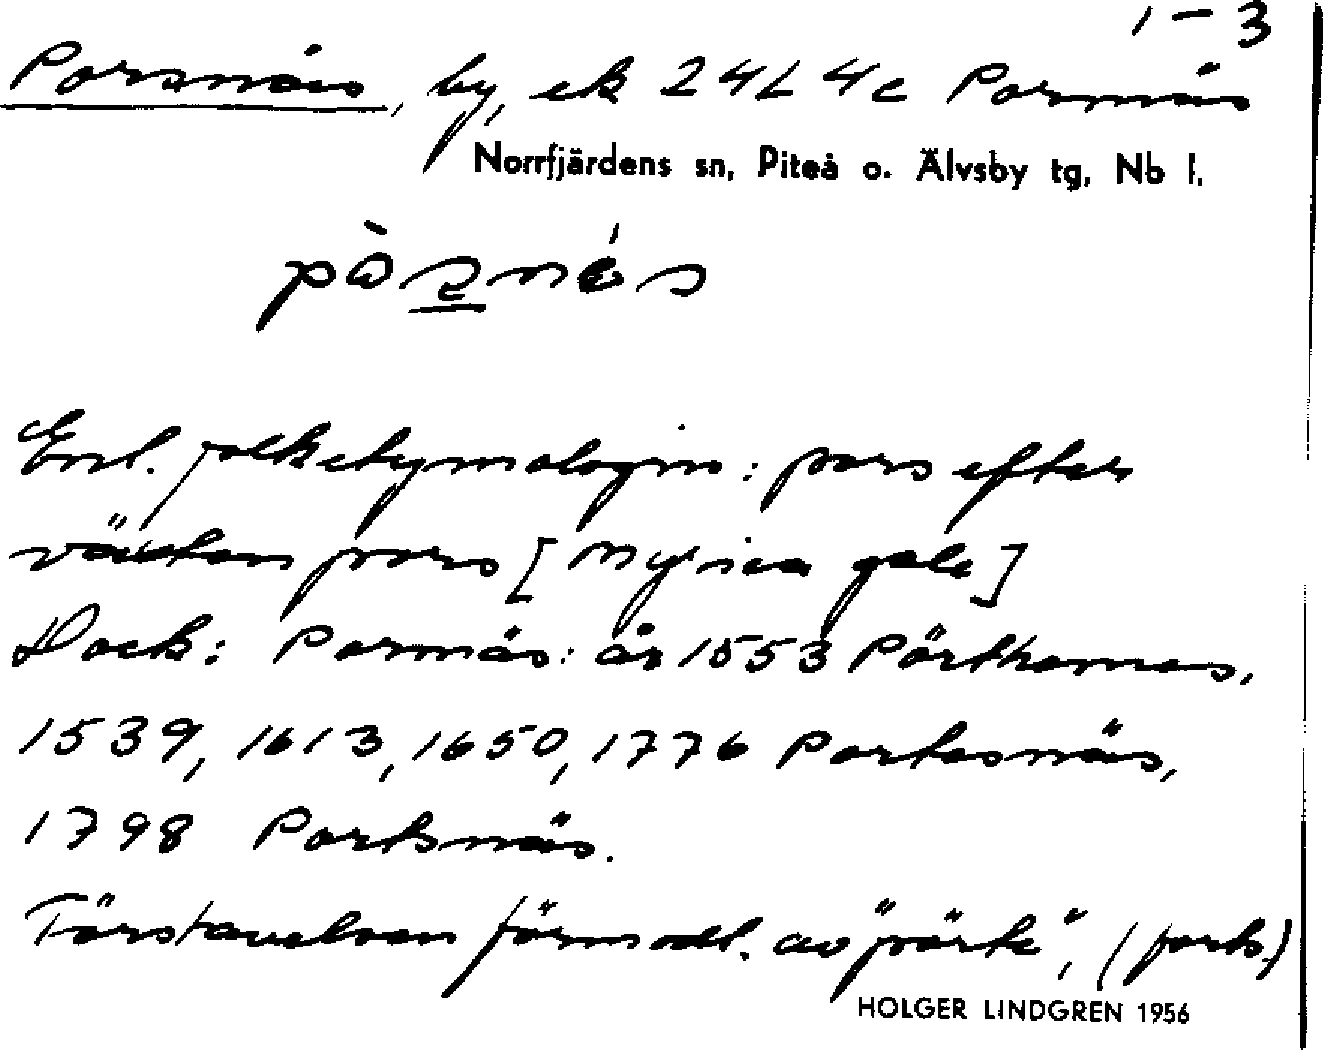 1-3
Porsnäs, by, ek 24L4c Porsnäs
Norrfjärdens sn, Piteå o. Älvsby tg, Nb l.
Enl. folketymologin: pors efter
växten pors [Myrica gale]
Dock: Porsnäs: år 1553
1539, 1613, 1650, 1776 Portesnäs,
1798 Portsnäs.
Förstavelsen förmodl. av "pörte", (forts.)
HOLGER LINDGREN 1956